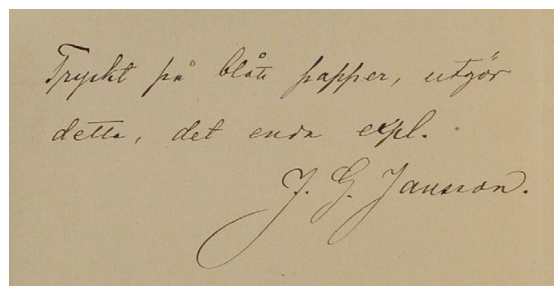 Tryckt på blått papper, utgör
detta, det enda expl.
J. G. Jansson.